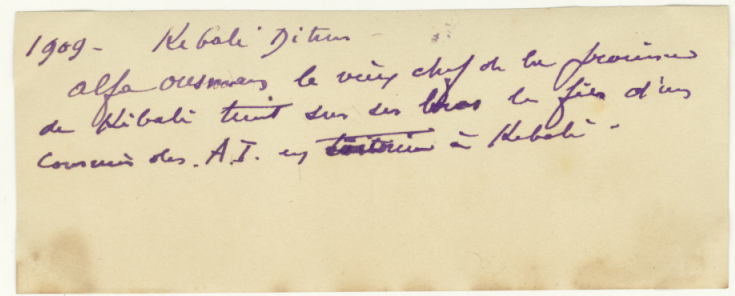 1909 - Kebali Ditum
Alfa Ousman le vieux chef de la province
de Kébali tient sur ses bras le fils d'un
commis des A.I. en à Kebali -